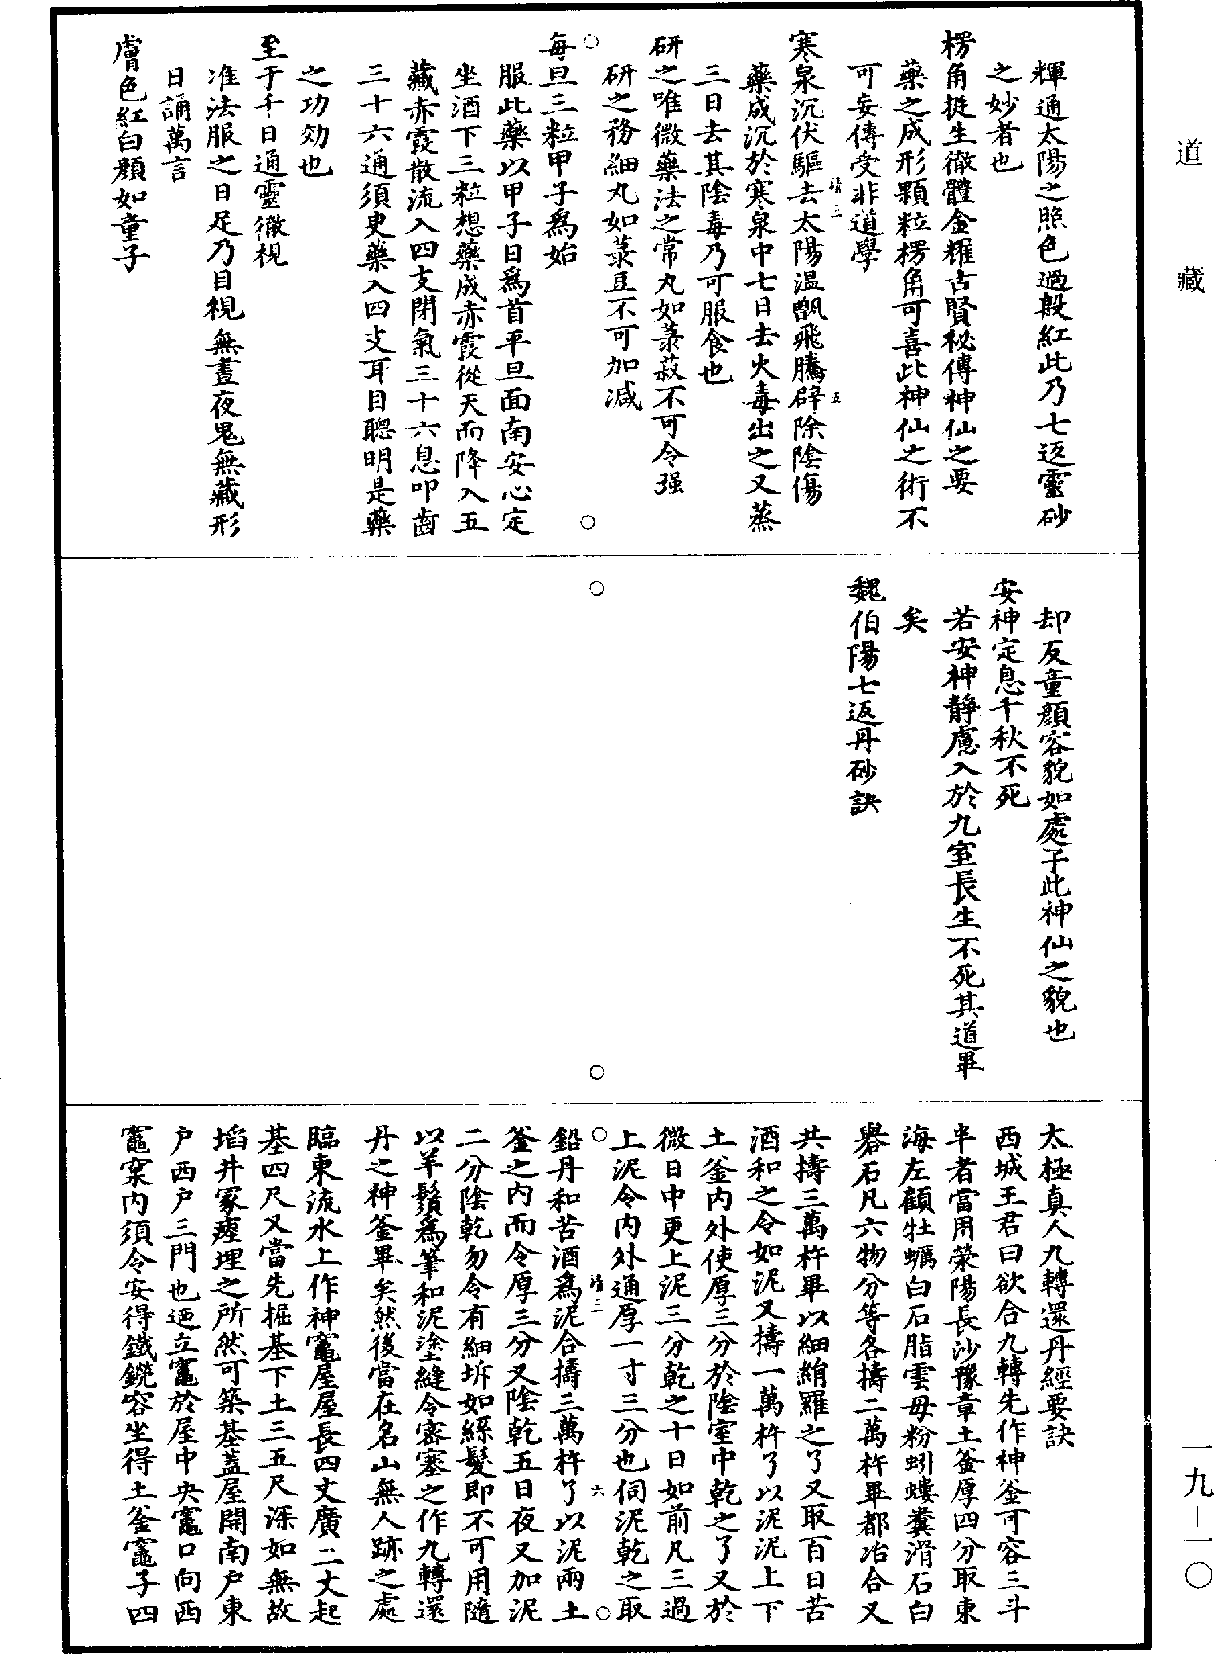 道藏
輝通太陽之照色過殷紅此乃七返靈砂
之妙者也
楞角挺生徹體金耀古賢秘傳神仙之要
藥之成形顆粒楞角可喜此神仙之術不
可妄傳受非道學
寒泉沉伏驅去太陽溫飜飛騰辟除陰傷
藥成沉於寒泉中七日去火毒出之又蒸
三日去其陰毒乃可服食也
研之唯微藥法之常丸如菉菽不可令强
研之務細丸如菉豆不可加減
每旦三粒甲子爲始
服此藥以甲子日爲首平旦面南安心定
坐酒下三粒想藥成赤霞從天而降入五
藏赤霞散流入四支閉氣三十六息叩齒
三十六通須臾藥入四支耳目聰明是藥
之功効也
至于千日通靈徹視
准法服之日足乃目視無晝夜鬼無藏形
日誦萬言
膚色紅白顏如童子
却反童顏容貌如處子此神仙之貌也
安神定息千秋不死
若安神靜慮入於九室長生不死其道畢
矣
魏伯陽七返丹砂訣
太極真人九轉還丹經要訣
西城王君曰欲合九轉先作神釜可容三斗
半者當用滎陽長沙豫章土釜厚四分取東
海左顧牡蠣白石脂雲母粉蚓螻糞滑石白
礜石凡六物分等各擣二萬杵畢都冶合又
共擣三萬杵畢以細絹羅之了又取百日苦
酒和之令如泥又擣一萬杵了以泥泥上下
土釜內外使厚三分於陰室中乾之了又於
微日中更上泥三分乾之十日如前凡三過
上泥令內外通厚一寸三分也伺泥乾之取
鉛丹和苦酒爲泥合擣三萬杵了以泥兩土
釜之內而令厚三分又陰乾五日夜又加泥
二分陰乾勿令有細坼如絲髮即不可用隨
以羊鬚爲筆和泥塗縫令密塞之作九轉還
丹之神釜畢矣然後當在名山無人跡之處
臨東流水上作神竈屋屋長四丈廣二丈起
基四尺又當先掘基下土三五尺深如無故
埳井冢瘞埋之所然可築基蓋屋開南戶東
戶西戶三門也迺立竈於屋中央竈口向西
竈窠內須令安得鐵鐺容坐得土釜竈子四
一九—一〇